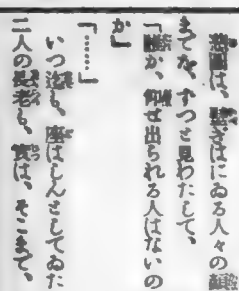 は、きはにゐる人々の
まてな、ずつと見わたして、
「か、仰せ出られる人はないの
か」
「……」
いつ迄も、座はしんとしてゐた
二人の長老も、實は、そこまで、